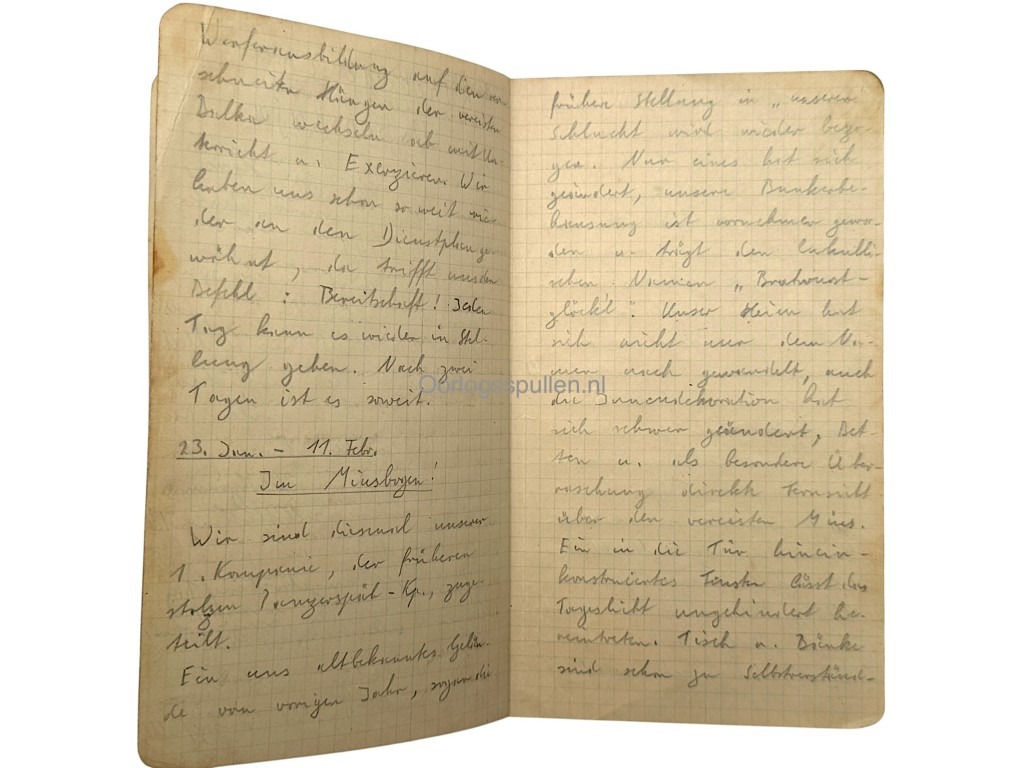 Werferausbildung auf den ver-
schneiten Hängen der vereisten
Balka wechseln ab mit Un-
terricht u. Exerzieren. Wir
haben uns schon so weit wie-
der an den Dienstplan ge-
wöhnt, da trifft uns der
Befehl: Bereitschaft! Jeden
Tag kann es wieder in Stel-
lung gehen. Nach zwei
Tagen ist es soweit.
23. Jan. - 11. Febr.
Im Miusbogen!
Wir sind diesmal unserer
1. Kompanie, der früheren
stolzen Panzerspäh-Kp., zuge-
teilt.
Ein uns altbekanntes Gelän-
de vom vorigen Jahr, sogar die
frühere Stellung in „unserer
Schlucht wird wieder bezo-
gen. Nur eines hat sich
geändert, unsere Bunkerbe-
hausung ist vornehmer gewor-
den u. trägt den lukulli-
schen Namen „Bratwurst-
glöckl". Unser Heim hat
sich nicht nur dem Na-
men nach gewandelt, auch
die Innendekoration hat
sich schwer geändert, Bet-
ten u. als besondere Über-
raschung direkt Fernsicht
über den vereisten Mius.
Ein in die Tür hinein-
konstruiertes Fenster lässt das
Tageslicht ungehindert he-
reintreten. Tisch u. Bänke
sind schon zu Selbstverständ-
Oorlogsspullen.nl